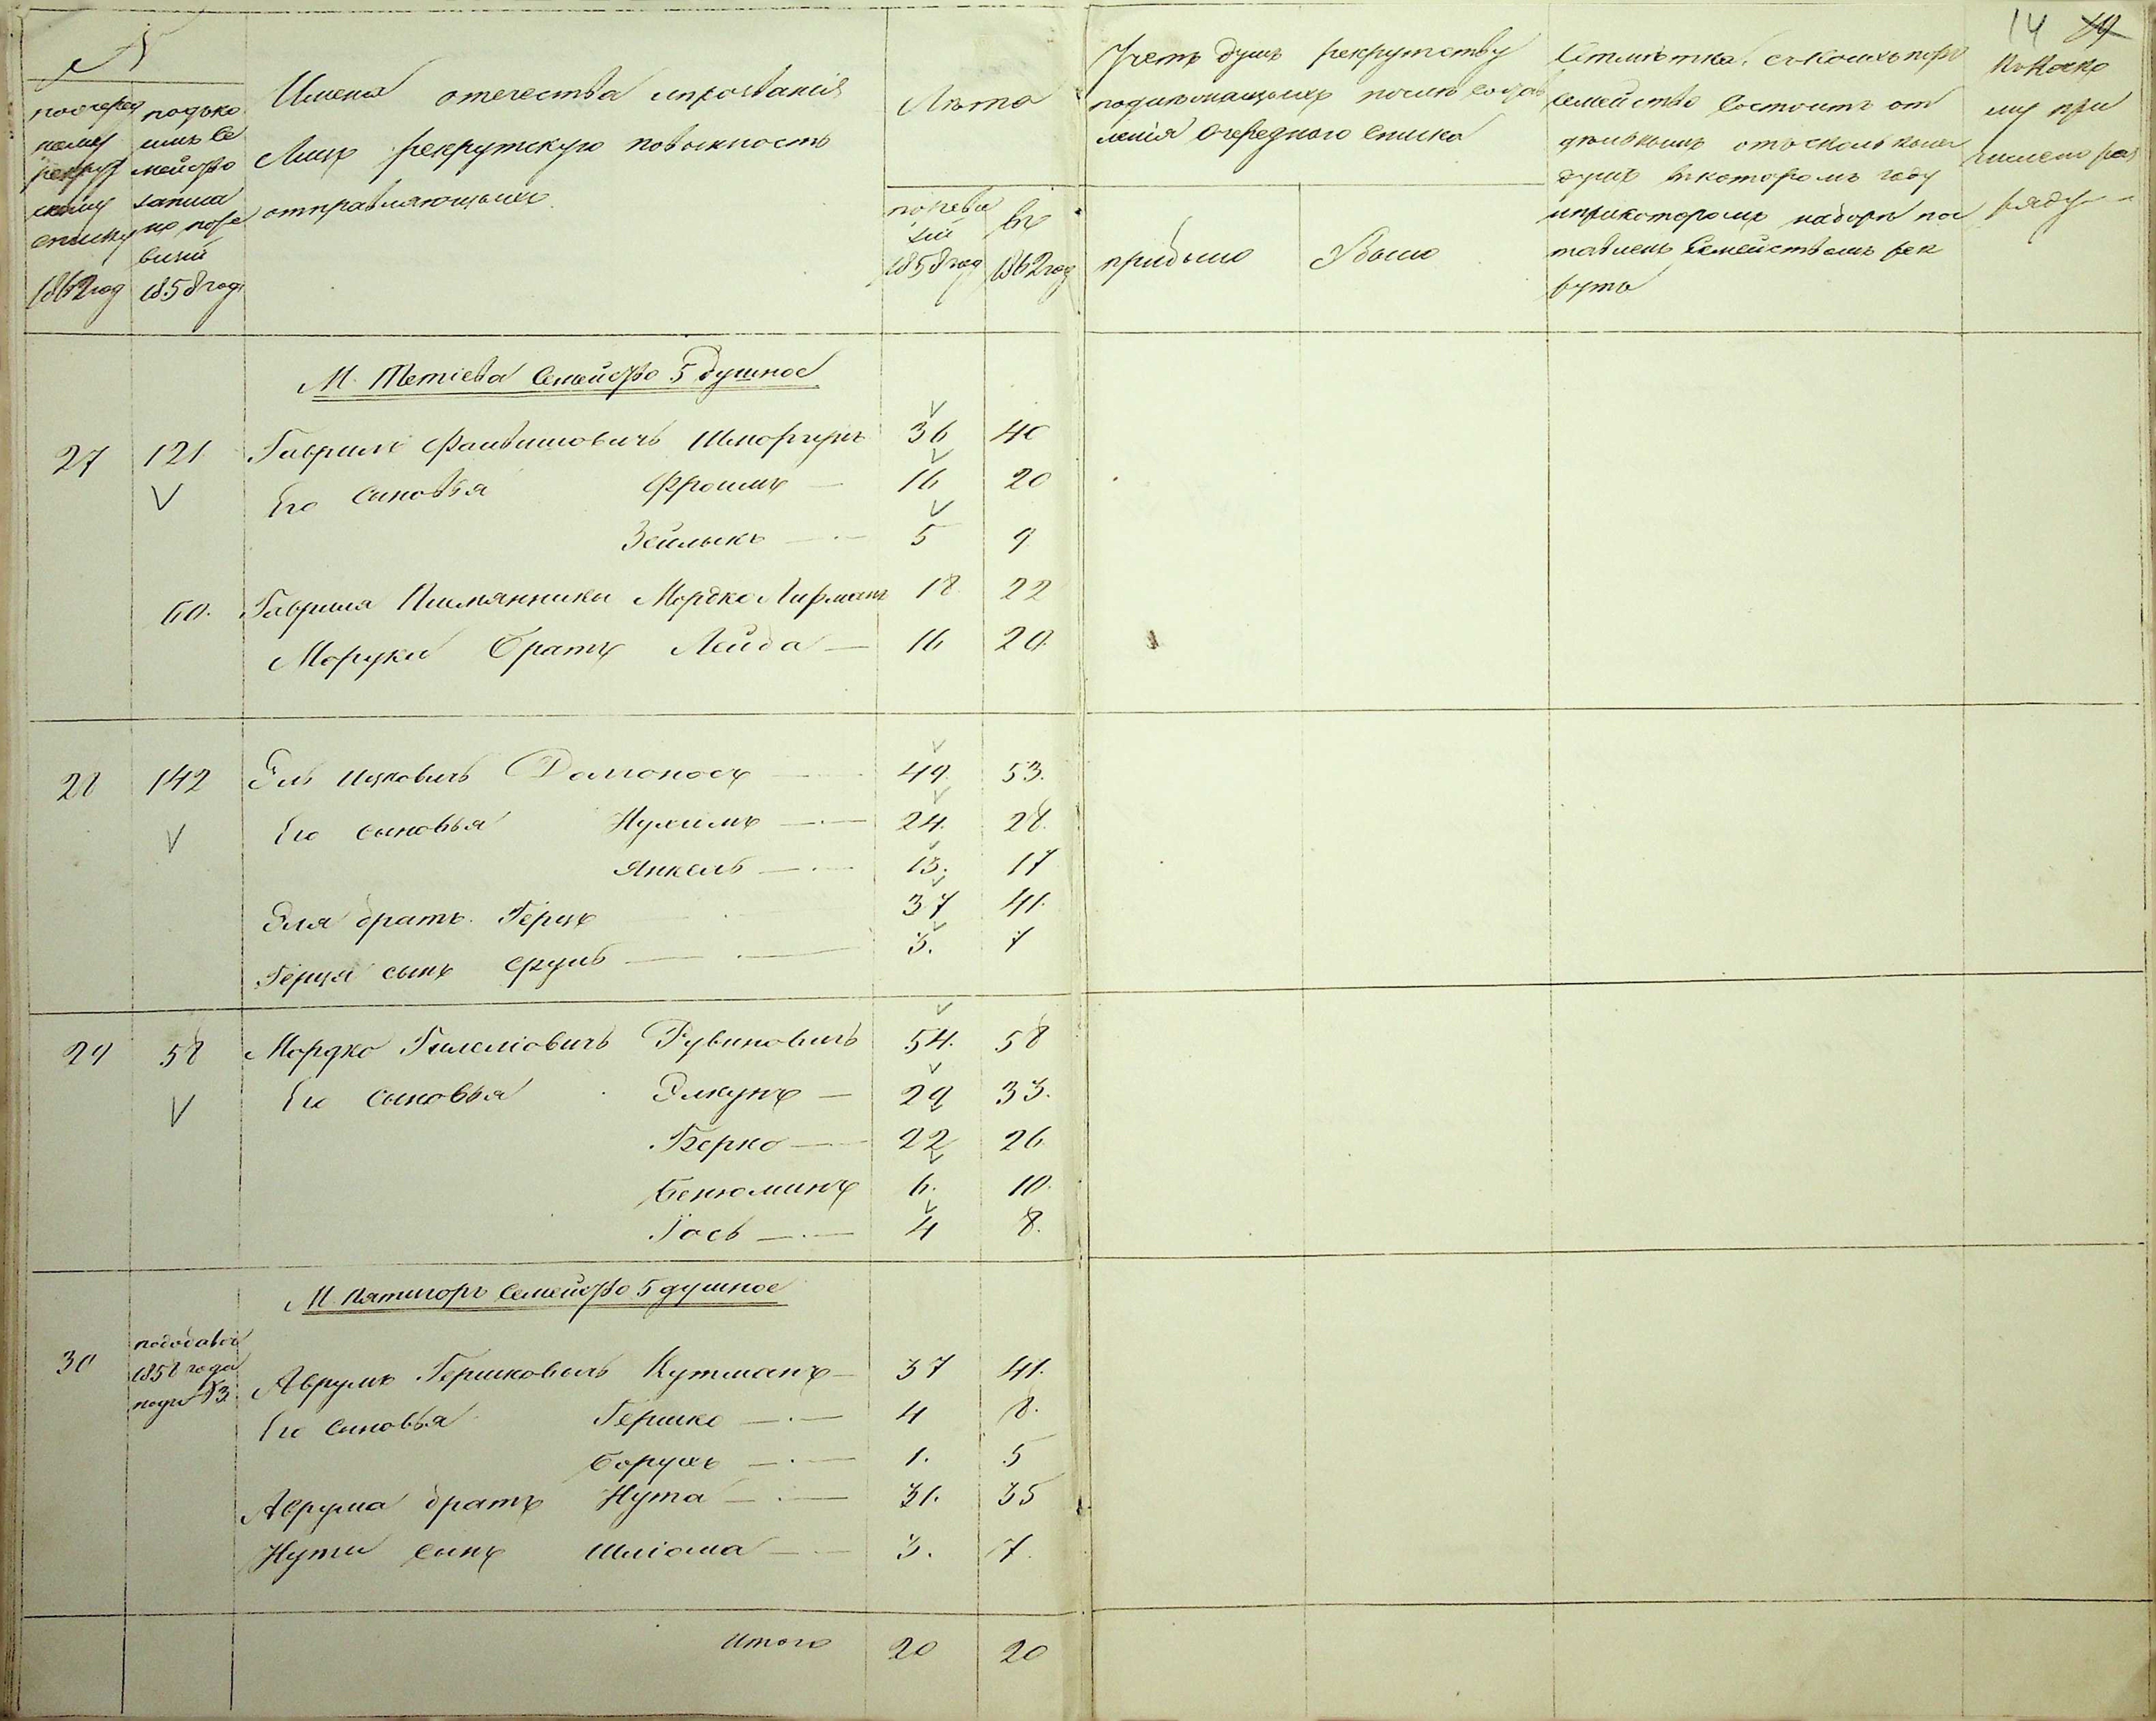 14 19
№
поочеред
ному
рекрут
скому
списку
1862 год
подъко
имъ Се
мейство
записа
но поре
визіи
1858 году
Имена отечества ипрозванія
Лицъ рекрутскую повинность
отправляющихъ
Лѣта
поревы
зіи
1858 год
въ
1862 год
Учетъ душъ рекрутству
подлежащихъ послѣ состав
ленія Очереднаго Списка
прибыло
Убыло
Отмѣтка, съкоихъ поръ
Семейство Состоитъ от
дѣльнымъ отъ сколькихъ
душъ вкоторомъ году
иприкоторомъ наборѣ пос
тавленъ Семействомъ рек
рутъ
Къ Коко
му при
числено раз
ряду
М. Тетіева Семейство 5 душное
27 121 Гаврило Файвишовичъ Шпоргунъ 36 40
Его Сыновья Фроимъ 16 20
Зейлыкъ 5 9
60. Гаврила Племянники Мордко Лифманъ 18 22
Мордки братъ Лейба 16 20.
28 142 Эль Ицковичъ Долгоносъ 49. 53.
Его сыновья Нухимъ 24. 28.
Янкель 13. 17
Эля братъ Герцъ 37 41.
Герця сынъ Сруль 3. 7
29 58 Мордко Гилелiовичъ Рувиновичъ 54. 58
Его Сыновья Элкунъ 29 33.
Берко 22 26
Бенюминъ 6. 10.
Іось 4 8.
М. Пятигоръ Семейство 5 душное
30 подобавоч
1858 года
подъ №3. Аврумъ Гершковичъ Кутманъ 37 41.
Его Сыновья Гершко 4 8.
Борухъ 1. 5
Аврума братъ Нута 31. 35
Нути сынъ Шліома 3. 7.
Итого 20 20